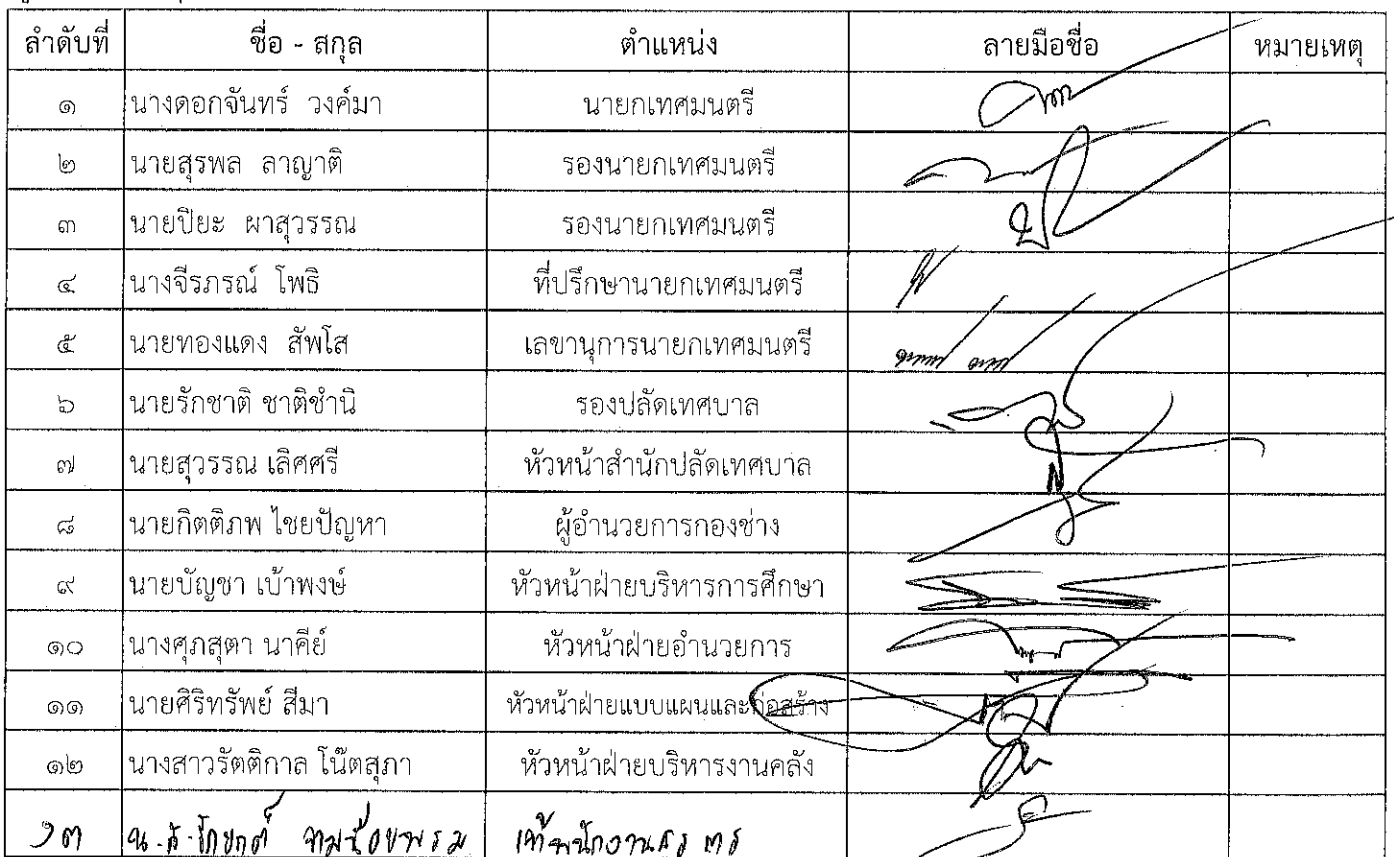 ลำดับที่ ชื่อ - สกุล ตำแหน่ง ลายมือชื่อ หมายเหตุ
๑ นางดอกจันทร์ วงค์มา นายกเทศมนตรี
๒ นายสุรพล ลาญาติ รองนายกเทศมนตรี
๓ นายปิยะ ผาสุวรรณ รองนายกเทศมนตรี
๔ นางจีรภรณ์ โพธิ ที่ปรึกษานายกเทศมนตรี
๕ นายทองแดง สัพโส เลขานุการนายกเทศมนตรี
๖ นายรักชาติ ชาติชำนิ รองปลัดเทศบาล
๗ นายสุวรรณ เลิศศรี หัวหน้าสำนักปลัดเทศบาล
๘ นายกิตติภพ ไชยปัญหา ผู้อำนวยการกองช่าง
๙ นายบัญชา เบ้าพงษ์ หัวหน้าฝ่ายบริหารการศึกษา
๑๐ นางศุภสุตา นาคีย์ หัวหน้าฝ่ายอำนวยการ
๑๑ นายศิริทรัพย์ สีมา หัวหน้าฝ่ายแบบแผนและก่อสร้าง
๑๒ นางสาวรัตติกาล โน๊ตสุภา หัวหน้าฝ่ายบริหารงานคลัง
๑๓ น.ส.